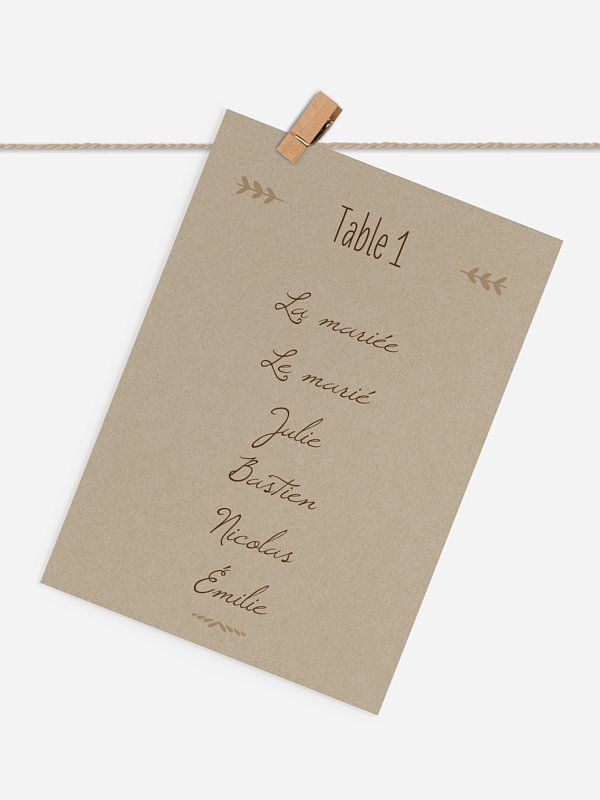 Table 1
La mariée
Le marié
Julie
Bastien
Nicolas
Émilie